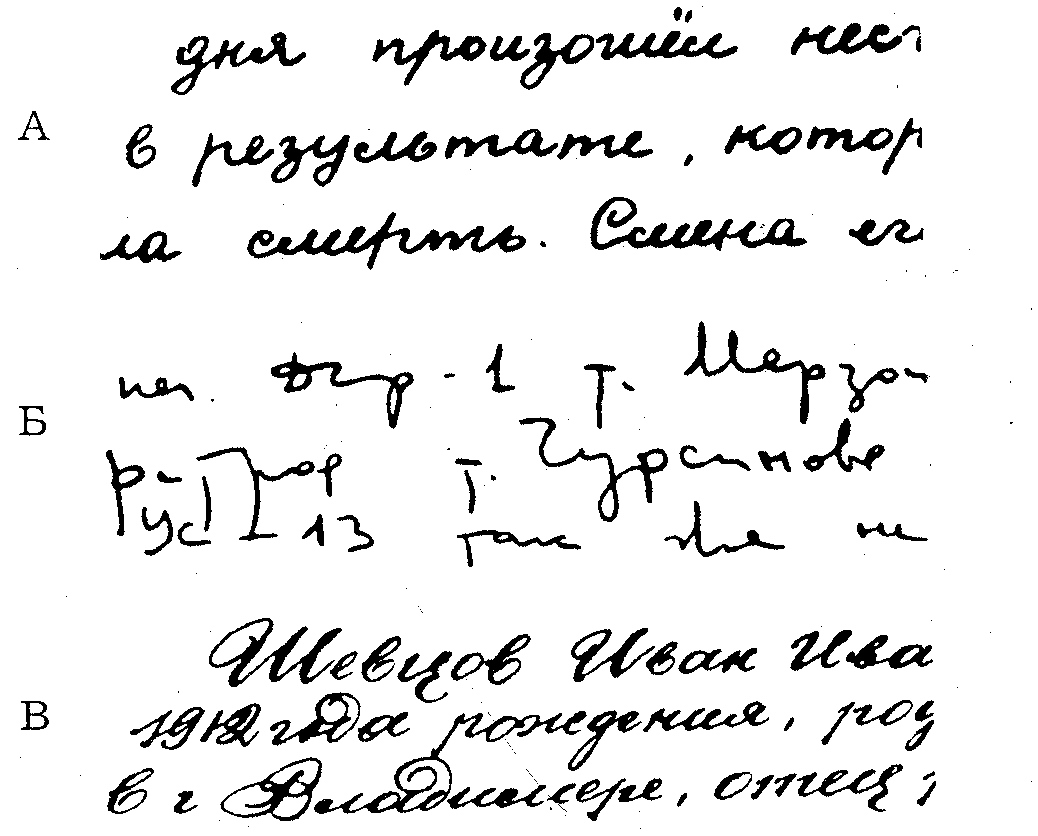 дня произошёл нест
А
в результате, котор
ла смерть. Смена ег
- 1 т. Мерзо
Б
т. Чурсинове
13 так же не
Шевцов Иван Ива
В
1912 года рождения, род
в г Владимере, отец